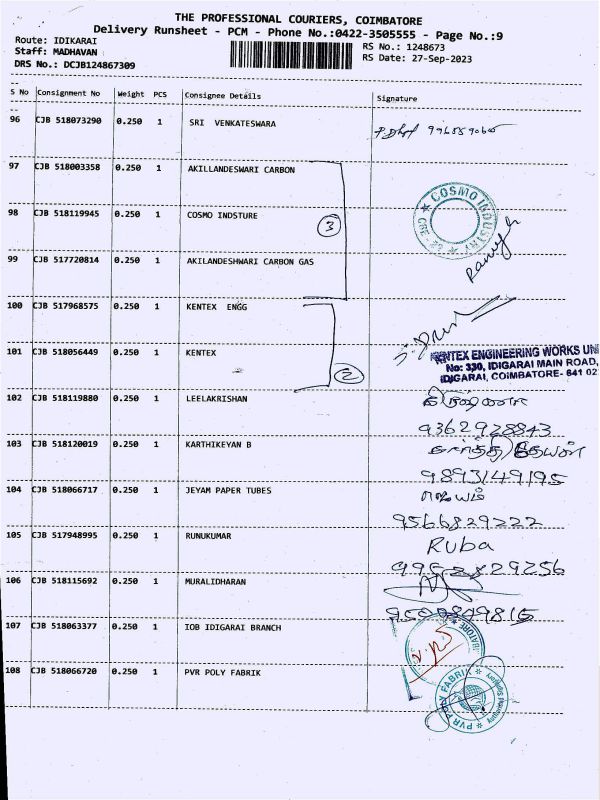 THE PROFESSIONAL COURIERS, COIMBATORE
Delivery Runsheet - PCM - Phone No.:0422-3505555 - Page No.:9
Route: IDIKARAI
RS No.: 1248673
Staff: MADHAVAN
RS Date: 27-Sep-2023
DRS No.: DCJB124867309
S No Consignment No Weight PCS Consignee Details Signature
96 CJB 518073290 0.250 1 SRI VENKATESWARA
97 CJB 518003358 0.250 1 AKILLANDESWARI CARBON
98 CJB 518119945 0.250 1 COSMO INDSTURE
3
COSMO INDUSTRY
CBE - 22
99 CJB 517720814 0.250 1 AKILANDESHWARI CARBON GAS
100 CJB 517968575 0.250 1 KENTEX ENGG
101 CJB 518056449 0.250 1 KENTEX
2
KENTEX ENGINEERING WORKS UNI
No: 330, IDIGARAI MAIN ROAD,
IDIGARAI, COIMBATORE- 641 02
102 CJB 518119880 0.250 1 LEELAKRISHAN
9362928843
103 CJB 518120019 0.250 1 KARTHIKEYAN B
9893149195
104 CJB 518066717 0.250 1 JEYAM PAPER TUBES
ஜெயம்
9566829222
105 CJB 517948995 0.250 1 RUNUKUMAR
Ruba
106 CJB 518115692 0.250 1 MURALIDHARAN
107 CJB 518063377 0.250 1 IOB IDIGARAI BRANCH
108 CJB 518066720 0.250 1 PVR POLY FABRIK
PVR POLY FABRIK
Authorised Signatory